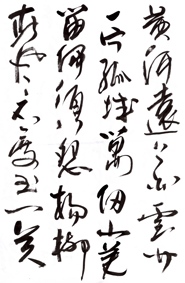 黄河遠上白雲间
一片孤城萬仞山羌
笛何須怨楊柳
春风不度玉门关